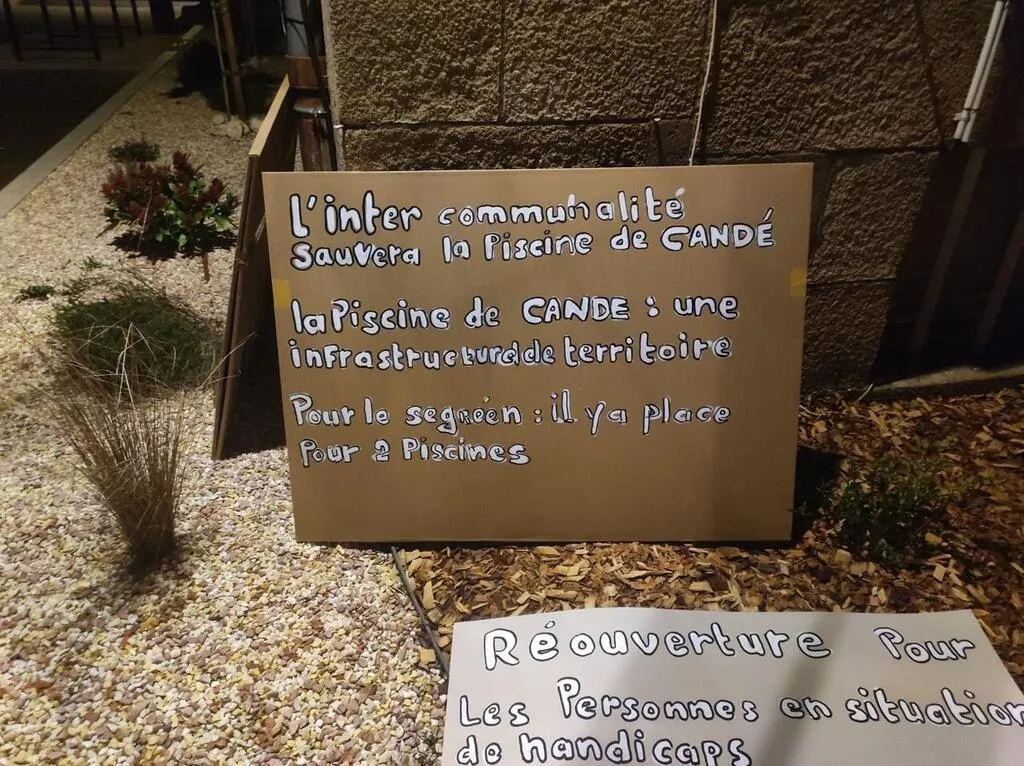 L'inter communalité
sauvera la Piscine de CANDÉ
la Piscine de CANDE : une
infrastructure de territoire
Pour le segréen : il y a place
Pour 2 Piscines
Réouverture Pour
Les Personnes en situation
de handicaps